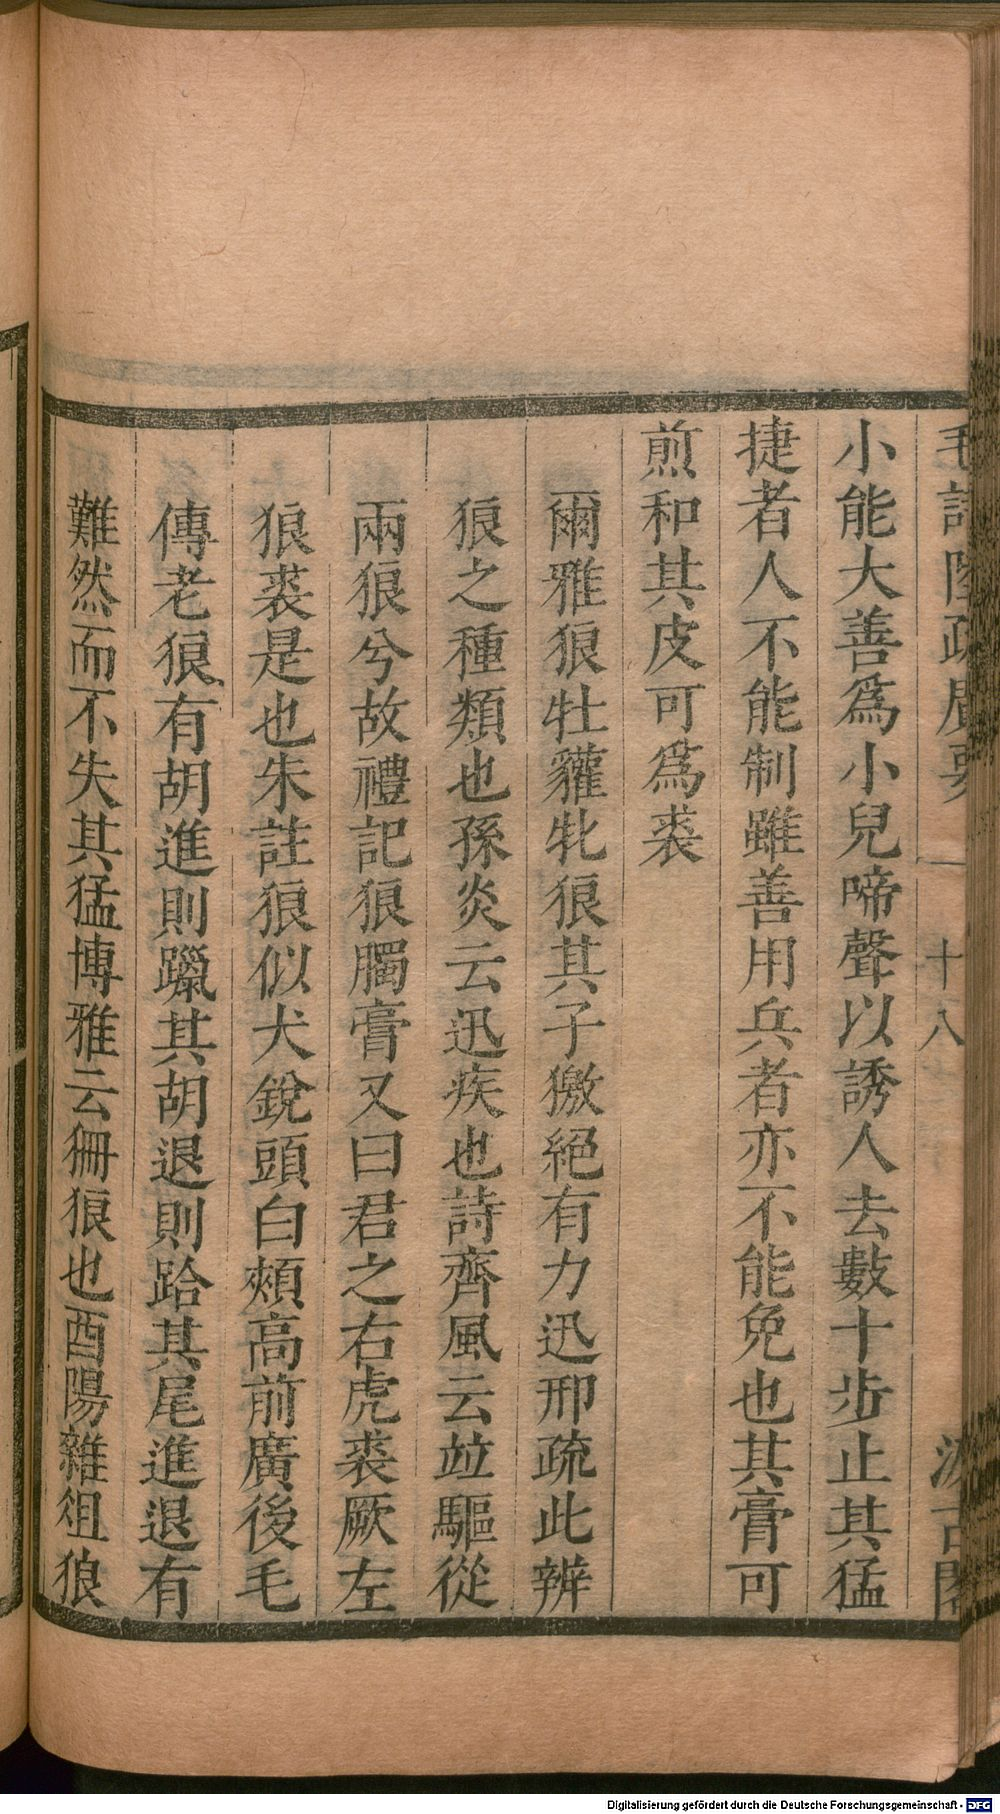 毛詩陸疏廣要 十八 汲古閣
小能大善爲小兒啼聲以誘人去數十步止其猛
捷者人不能制雖善用兵者亦不能免也其膏可
煎和其皮可爲裘
爾雅狼牡貛牝狼其子獥絕有力迅邢疏此辨
狼之種類也孫炎云迅疾也詩齊風云竝驅從
兩狼兮故禮記狼臅膏又曰君之右虎裘厥左
狼裘是也朱註狼似犬銳頭白頰高前廣後毛
傳老狼有胡進則躐其胡退則跲其尾進退有
難然而不失其猛博雅云㹪狼也酉陽雜俎狼
Digitalisierung gefördert durch die Deutsche Forschungsgemeinschaft - DFG